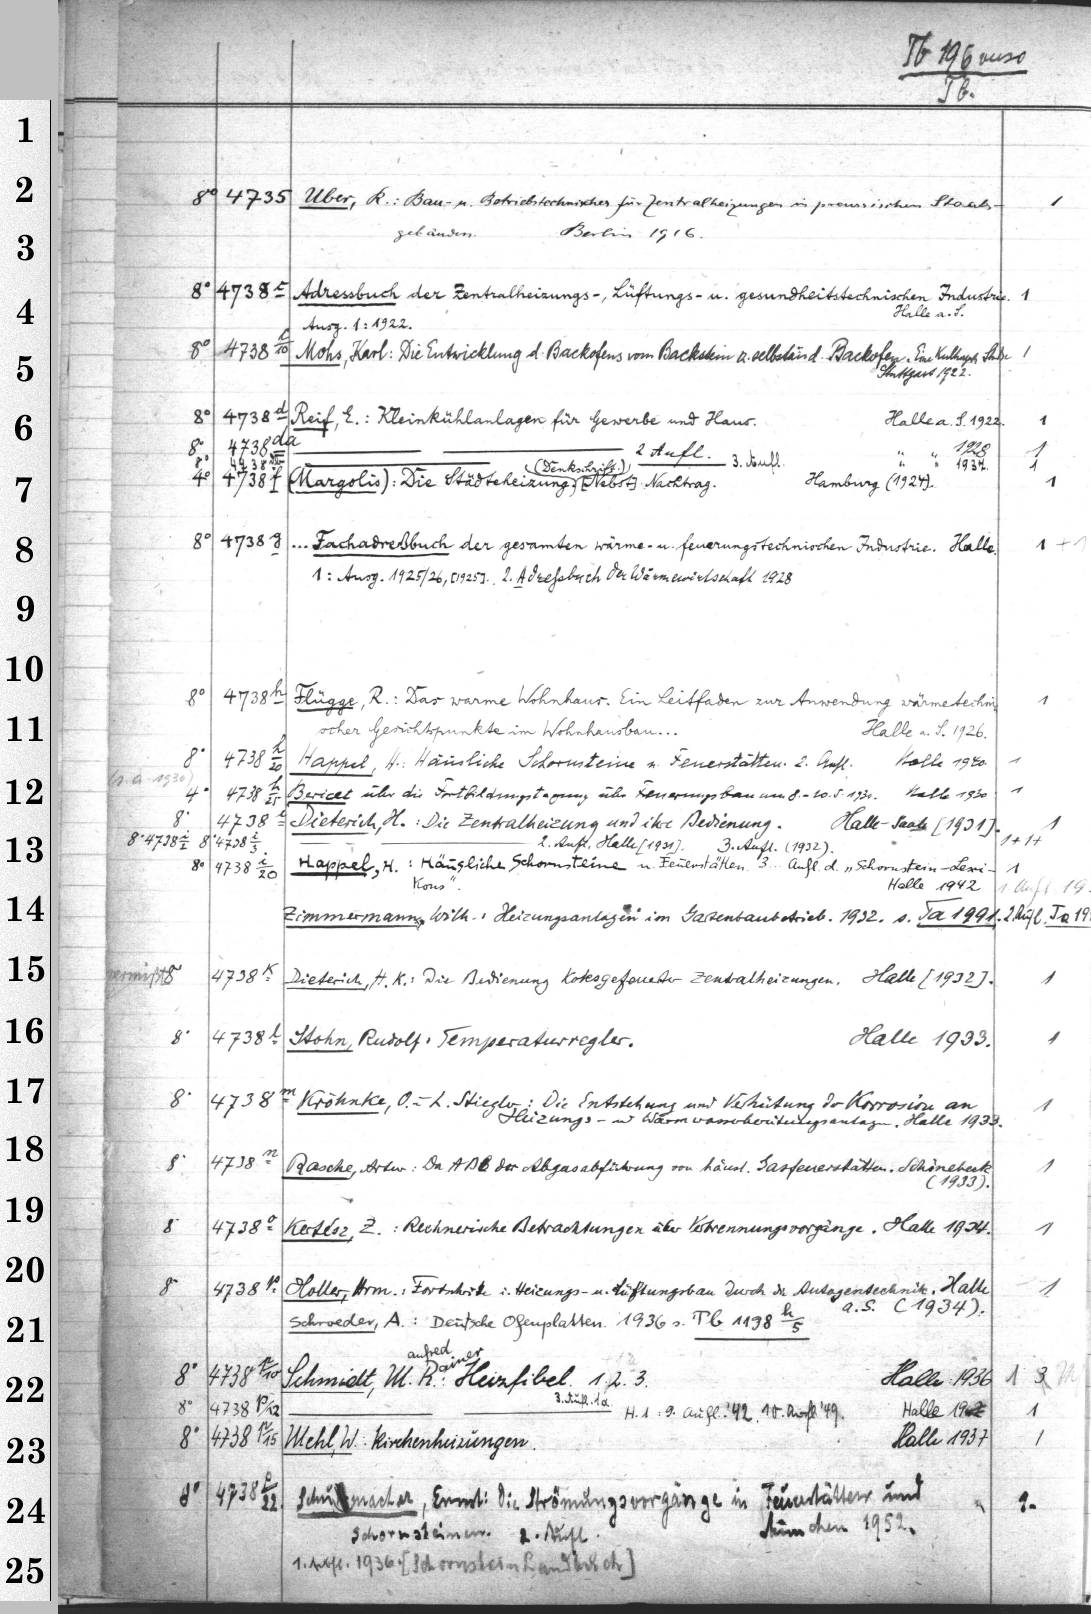 Tb 196 verso
Tb.
1
2
8° 4735 Uber, R.: Bau- u. Betriebstechnisches für Zentralheizungen in preussischen Staats- 1
gebäuden. Berlin 1916.
3
8° 4738 c Adressbuch der Zentralheizungs-, Lüftungs- u. gesundheitstechnischen Industrie. 1
Halle a. S.
4
Ausg. 1: 1922.
8° 4738 c/10 Mohs, Karl: Die Entwicklung d. Backofens vom Backstein z. selbständ. Backofen. Eine 1
5
Stuttgart 1922.
6
8° 4738 d Reif, E.: Kleinkühlanlagen für Gewerbe und Haus. Halle a. S. 1922. 1
8° 4738 da 2 Aufl. " " 1928 1
8° 3. Aufl. " " 1934. 1
7
4° 4738 f (Margolis): Die Städteheizung (Denkschrift.) [Nebst] Nachtrag. Hamburg (1924). 1
8
8° 4738 g ... Fachadreßbuch der gesamten wärme- u. feuerungstechnischen Industrie. Halle. 1 + 1
1: Ausg. 1925/26, [1925]. 2. Adreßbuch der Wärmewirtschaft 1928
9
10
8° 4738 h Flügge, R.: Das warme Wohnhaus. Ein Leitfaden zur Anwendung wärmetechni 1
11
scher Gesichtspunkte im Wohnhausbau... Halle a. S. 1926.
8° 4738 h/20 Happel, H.: Häusliche Schornsteine u. Feuerstätten. 2. Aufl. Halle 1940. 1
(s. a. 1930)
12
4° 4738 h/25 Bericht über die Fortbildungstagung über Feuerungsbau am 8.-10. 5. 1930. Halle 1930 1
8° 4738 i Dieterich, H.: Die Zentralheizung und ihre Bedienung. Halle-Saale [1931]. 1
13
8° 4738 i/2 8° 4738 i/3 2. Aufl. Halle [1931]. 3. Aufl. (1932). 1+1+
8° 4738 i/20 Happel, H.: Häusliche Schornsteine u. Feuerstätten. 3. Aufl. d. „Schornstein-Lexi- 1
kons". Halle 1942 1 Aufl. 19
14
Zimmermann, Wilh.: Heizungsanlagen im Gartenbaubetrieb. 1932. s. Ta 1991. 2. Aufl. Ta 19
15
vermißt 8° 4738 k Dieterich, H. K.: Die Bedienung koksgefeuerter Zentralheizungen. Halle [1932]. 1
16
8° 4738 l Stohn, Rudolf: Temperaturregler. Halle 1933. 1
17
8° 4738 m Kröhnke, O. - L. Stiegler: Die Entstehung und Verhütung der Korrosion an 1
Heizungs- und Warmwasserbereitungsanlagen. Halle 1933.
18
8° 4738 n Rasche, Artur: Das ABC der Abgasabführung von häusl. Gasfeuerstätten. Schönebeck 1
(1933).
19
8° 4738 o Kertész, Z.: Rechnerische Betrachtungen über Verbrennungsvorgänge. Halle 1934. 1
20
8° 4738 p Holler, Hrm.: Fortschritte i. Heizungs- u. Lüftungsbau durch die Autogentechnik. Halle 1
a. S. (1934).
21
Schroeder, A.: Deutsche Ofenplatten. 1936 s. Tb 1198 h/5
8° 4738 p/10 Schmidt, M. R.: Heizfibel. 1. 2. 3. Halle 1936 1 3
anfred ainer
22
8° 4738 p/12 3. Aufl. H. 1: 9. Aufl. '42, 10. Aufl. '49. Halle 1
23
8° 4738 p/15 Mehl, W: Kirchenheizungen. Halle 1937 1
24
8° 4738 p/22 Schumacher, Ernst: Die Strömungsvorgänge in Feuerstätten und 1.
Schornsteinen. 2. Aufl. München 1952.
25
1. Aufl. 1936. [Schornstein Handbuch]